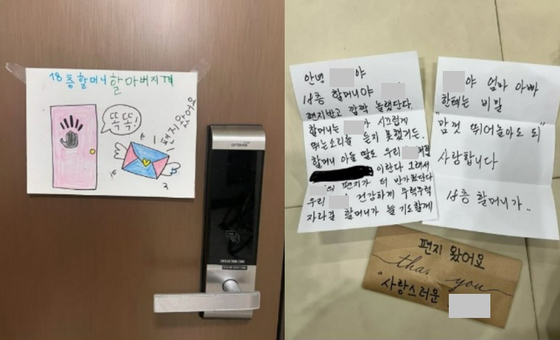 18층할머니할아버지께
똑똑!
편지왔어요
안녕 야
18층 할머니야
편지받고 깜짝 놀랬단다.
할머니는 가 시끄럽게
뛰는소리를 듣지 못했거든.
할머니 아들 딸도 우리 처럼
이란다 그래서
의 편지가 더 반가웠단다
우리 건강하게 무럭무럭
자라길 할머니가 늘 기도할께
야 엄마 아빠
한테는 비밀
"맘껏 뛰어놀아도 되"
사랑합니다
18층 할머니가..
편지 왔어요
thank you
"사랑스러운